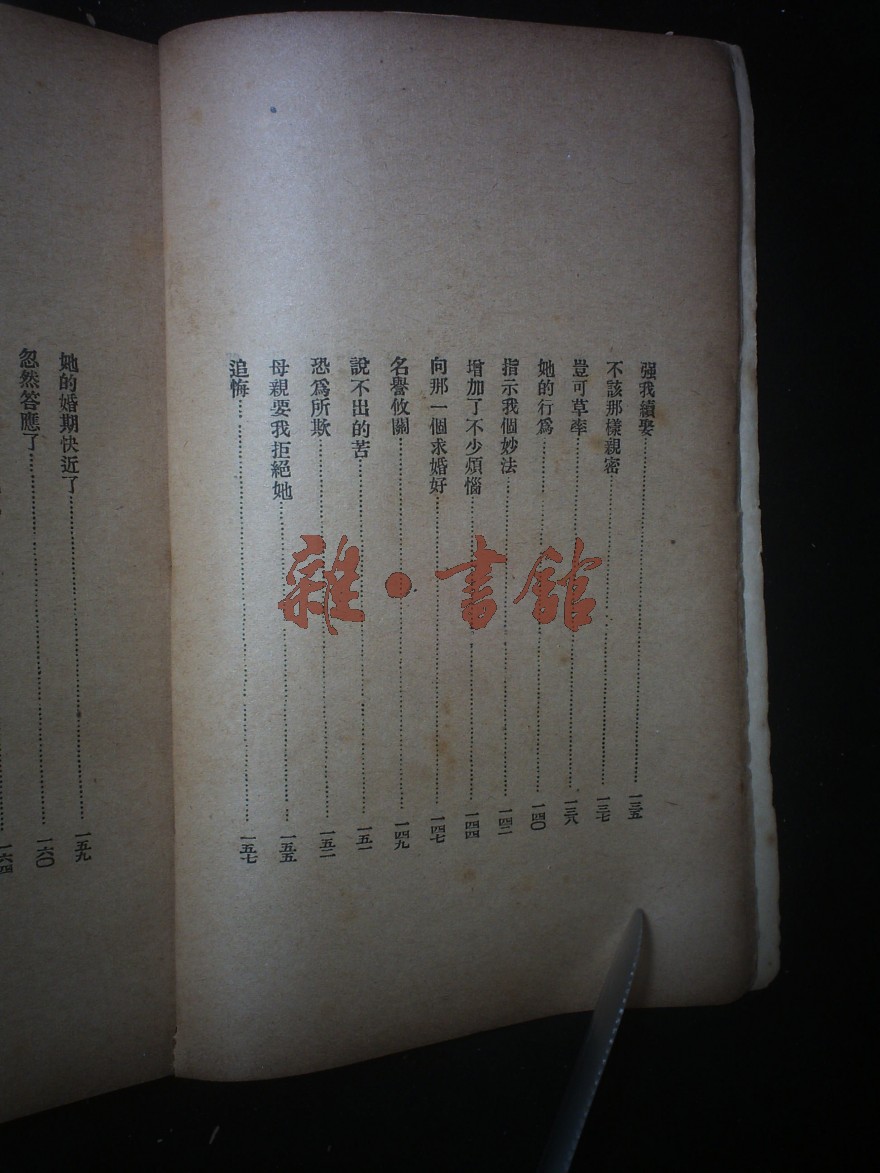 强我續娶……一三五
不該那樣親密……一三七
豈可草率……一三八
她的行爲……一四〇
指示我個妙法……一四二
增加了不少煩惱……一四四
向那一個求婚好……一四七
名譽攸關……一四九
說不出的苦……一五一
恐爲所欺……一五二
母親要我拒絕她……一五五
追悔……一五七
她的婚期快近了……一五九
忽然答應了……一六〇
一六四
雜·書館